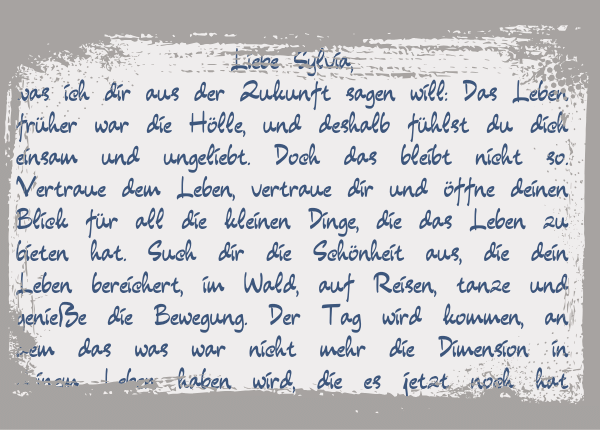 Liebe Sylvia,
was ich dir aus der Zukunft sagen will: Das Leben
früher war die Hölle, und deshalb fühlst du dich
einsam und ungeliebt. Doch das bleibt nicht so.
Vertraue dem Leben, vertraue dir und öffne deinen
Blick für all die kleinen Dinge, die das Leben zu
bieten hat. Such dir die Schönheit aus, die dein
Leben bereichert, im Wald, auf Reisen, tanze und
genieße die Bewegung. Der Tag wird kommen, an
dem das was war nicht mehr die Dimension in
deinem Leben haben wird, die es jetzt noch hat